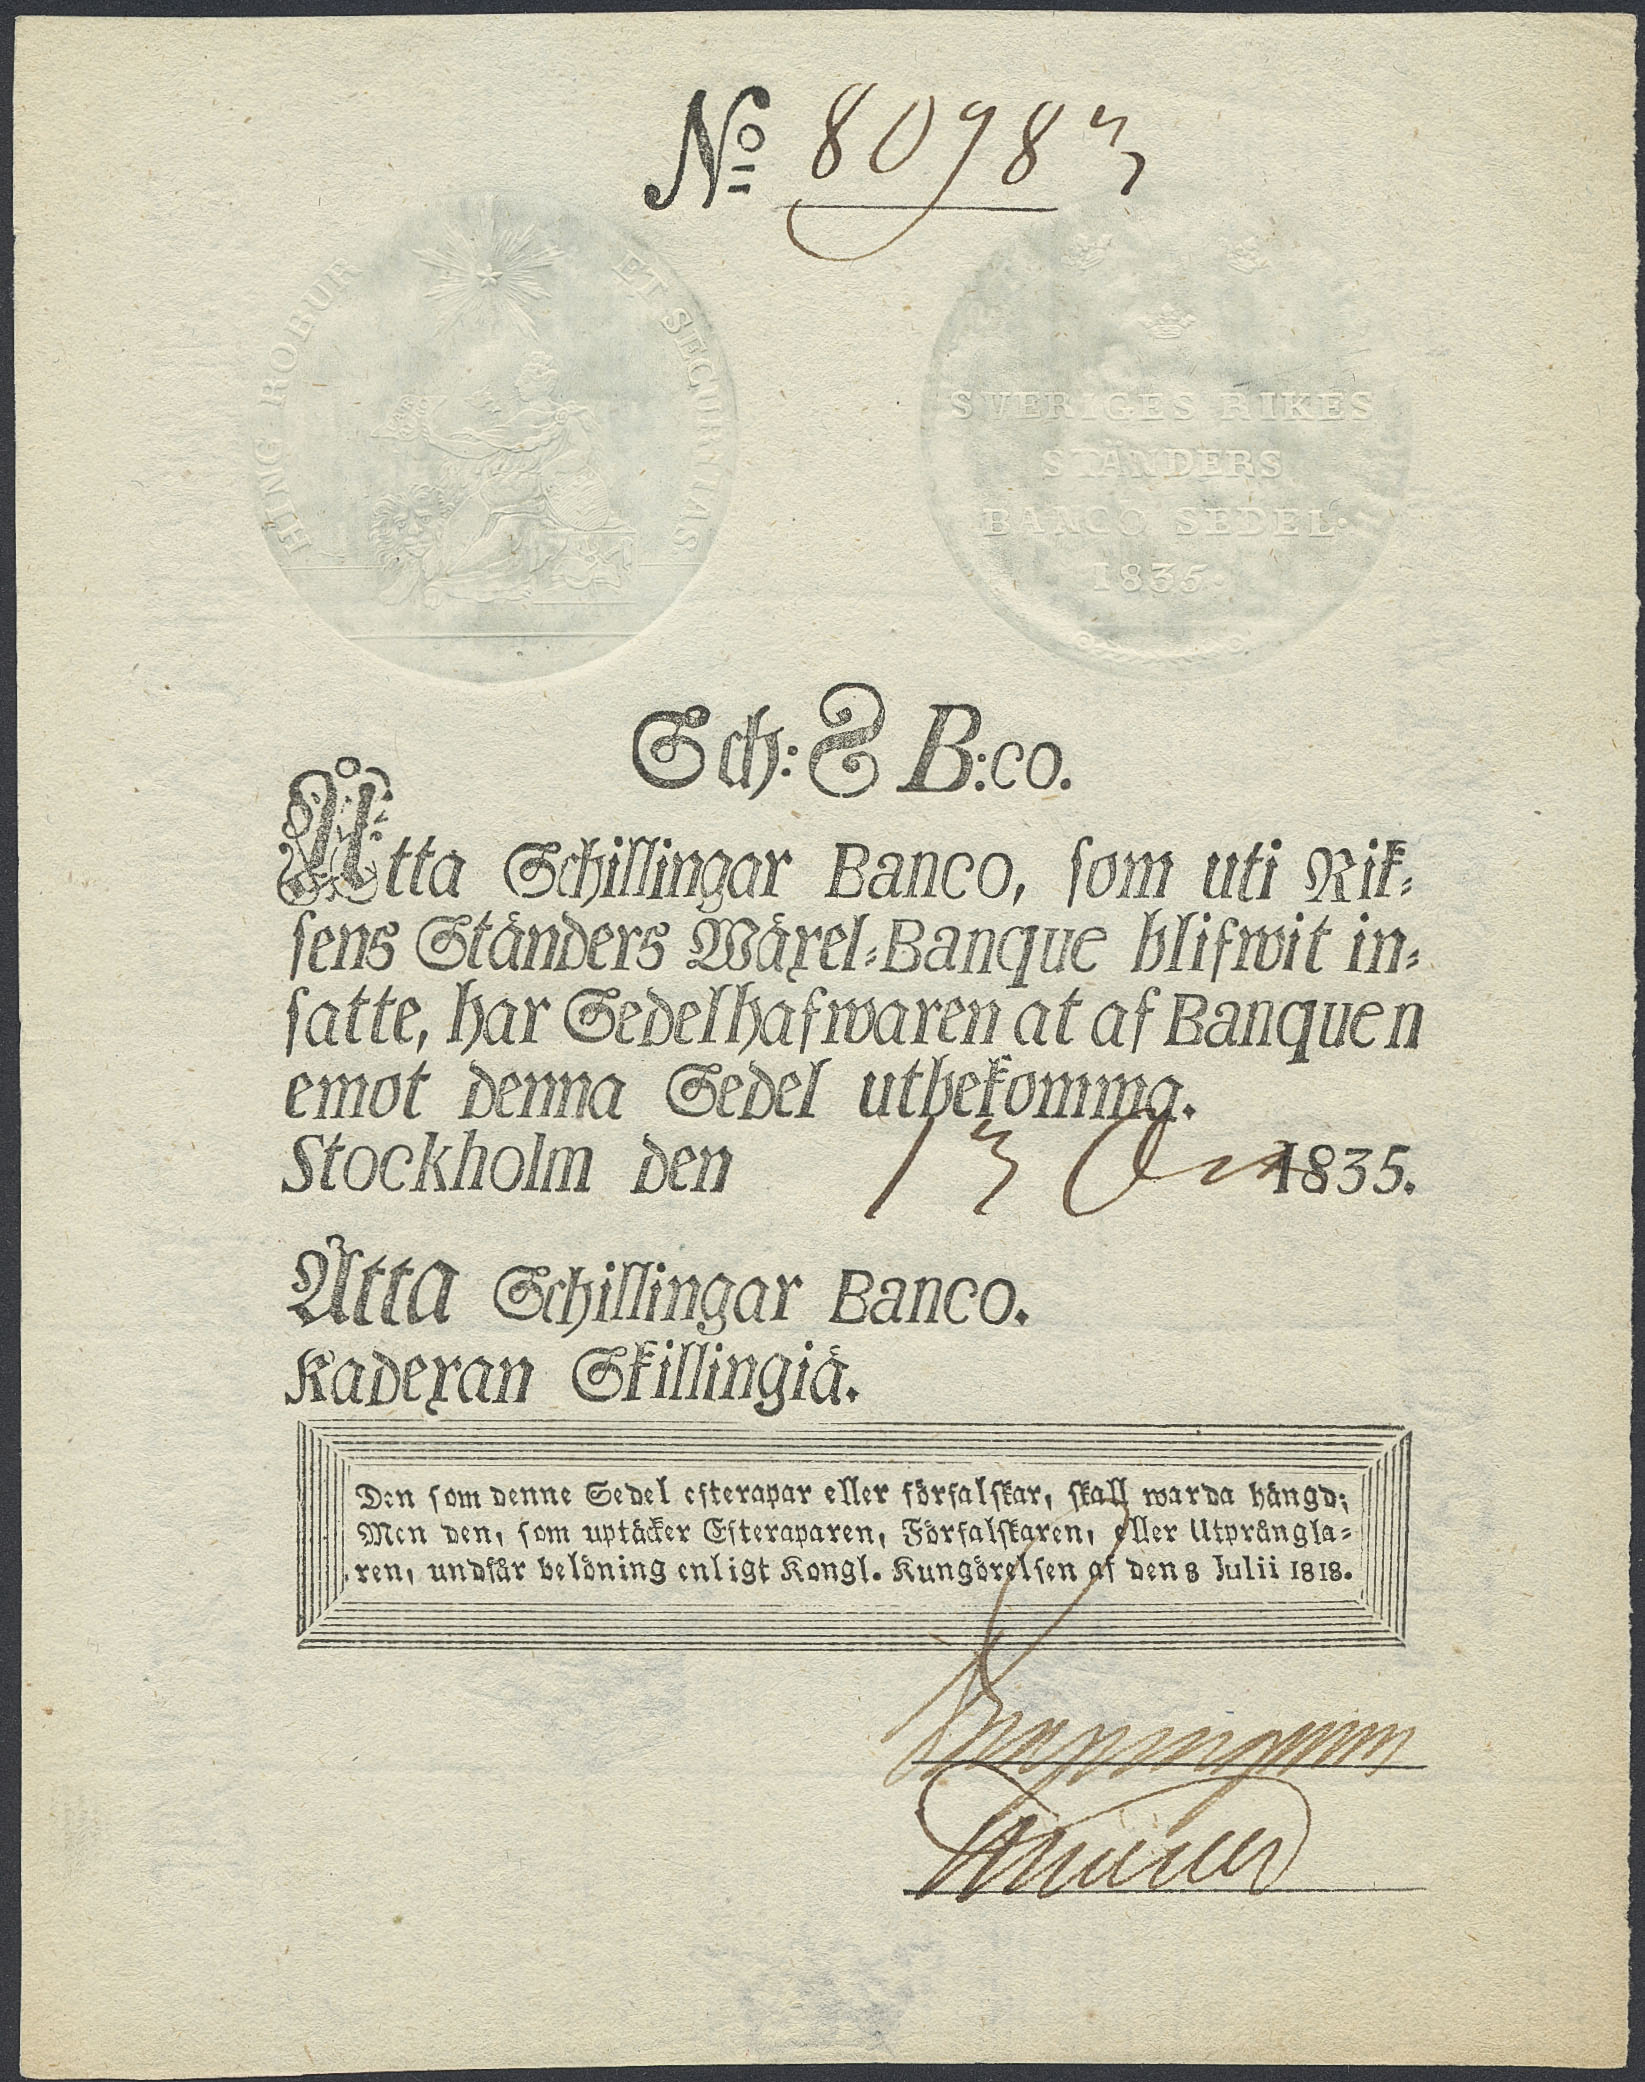 No 80983
HINC ROBUR ET SECURITAS
SVERIGES RIKES
STÄNDERS
BANCO SEDEL.
1835.
Sch: 8 B:co.
Åtta Schillingar Banco, som uti Rik-
sens Ständers Wäxel-Banque blifwit in-
satte, har Sedelhafwaren at af Banquen
emot denna Sedel utbekomma.
Stockholm den 13 1835.
Åtta Schillingar Banco.
Kadexan Skillingiä.
Den som denne Sedel efterapar eller förfalskar, skall warda hängd;
Men den, som uptäcker Efteraparen, Förfalskaren, eller Utprångla-
ren, undfår belöning enligt Kongl. Kungörelsen af den 8 Julii 1818.